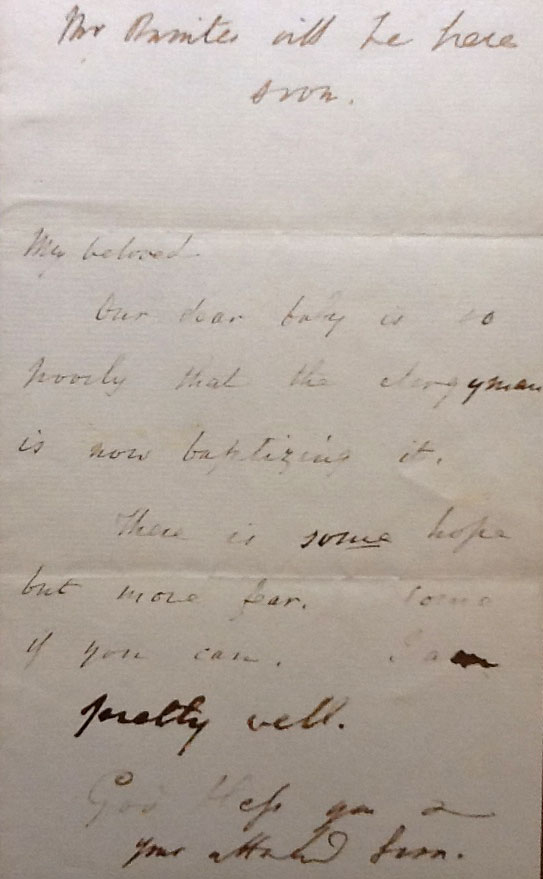 Mr will be here
soon.
My beloved
Our dear baby is so
poorly that the clergyman
is now baptizing it.
There is some hope
but more fear. Come
if you can. I am
pretty well.
God bless you
your son.